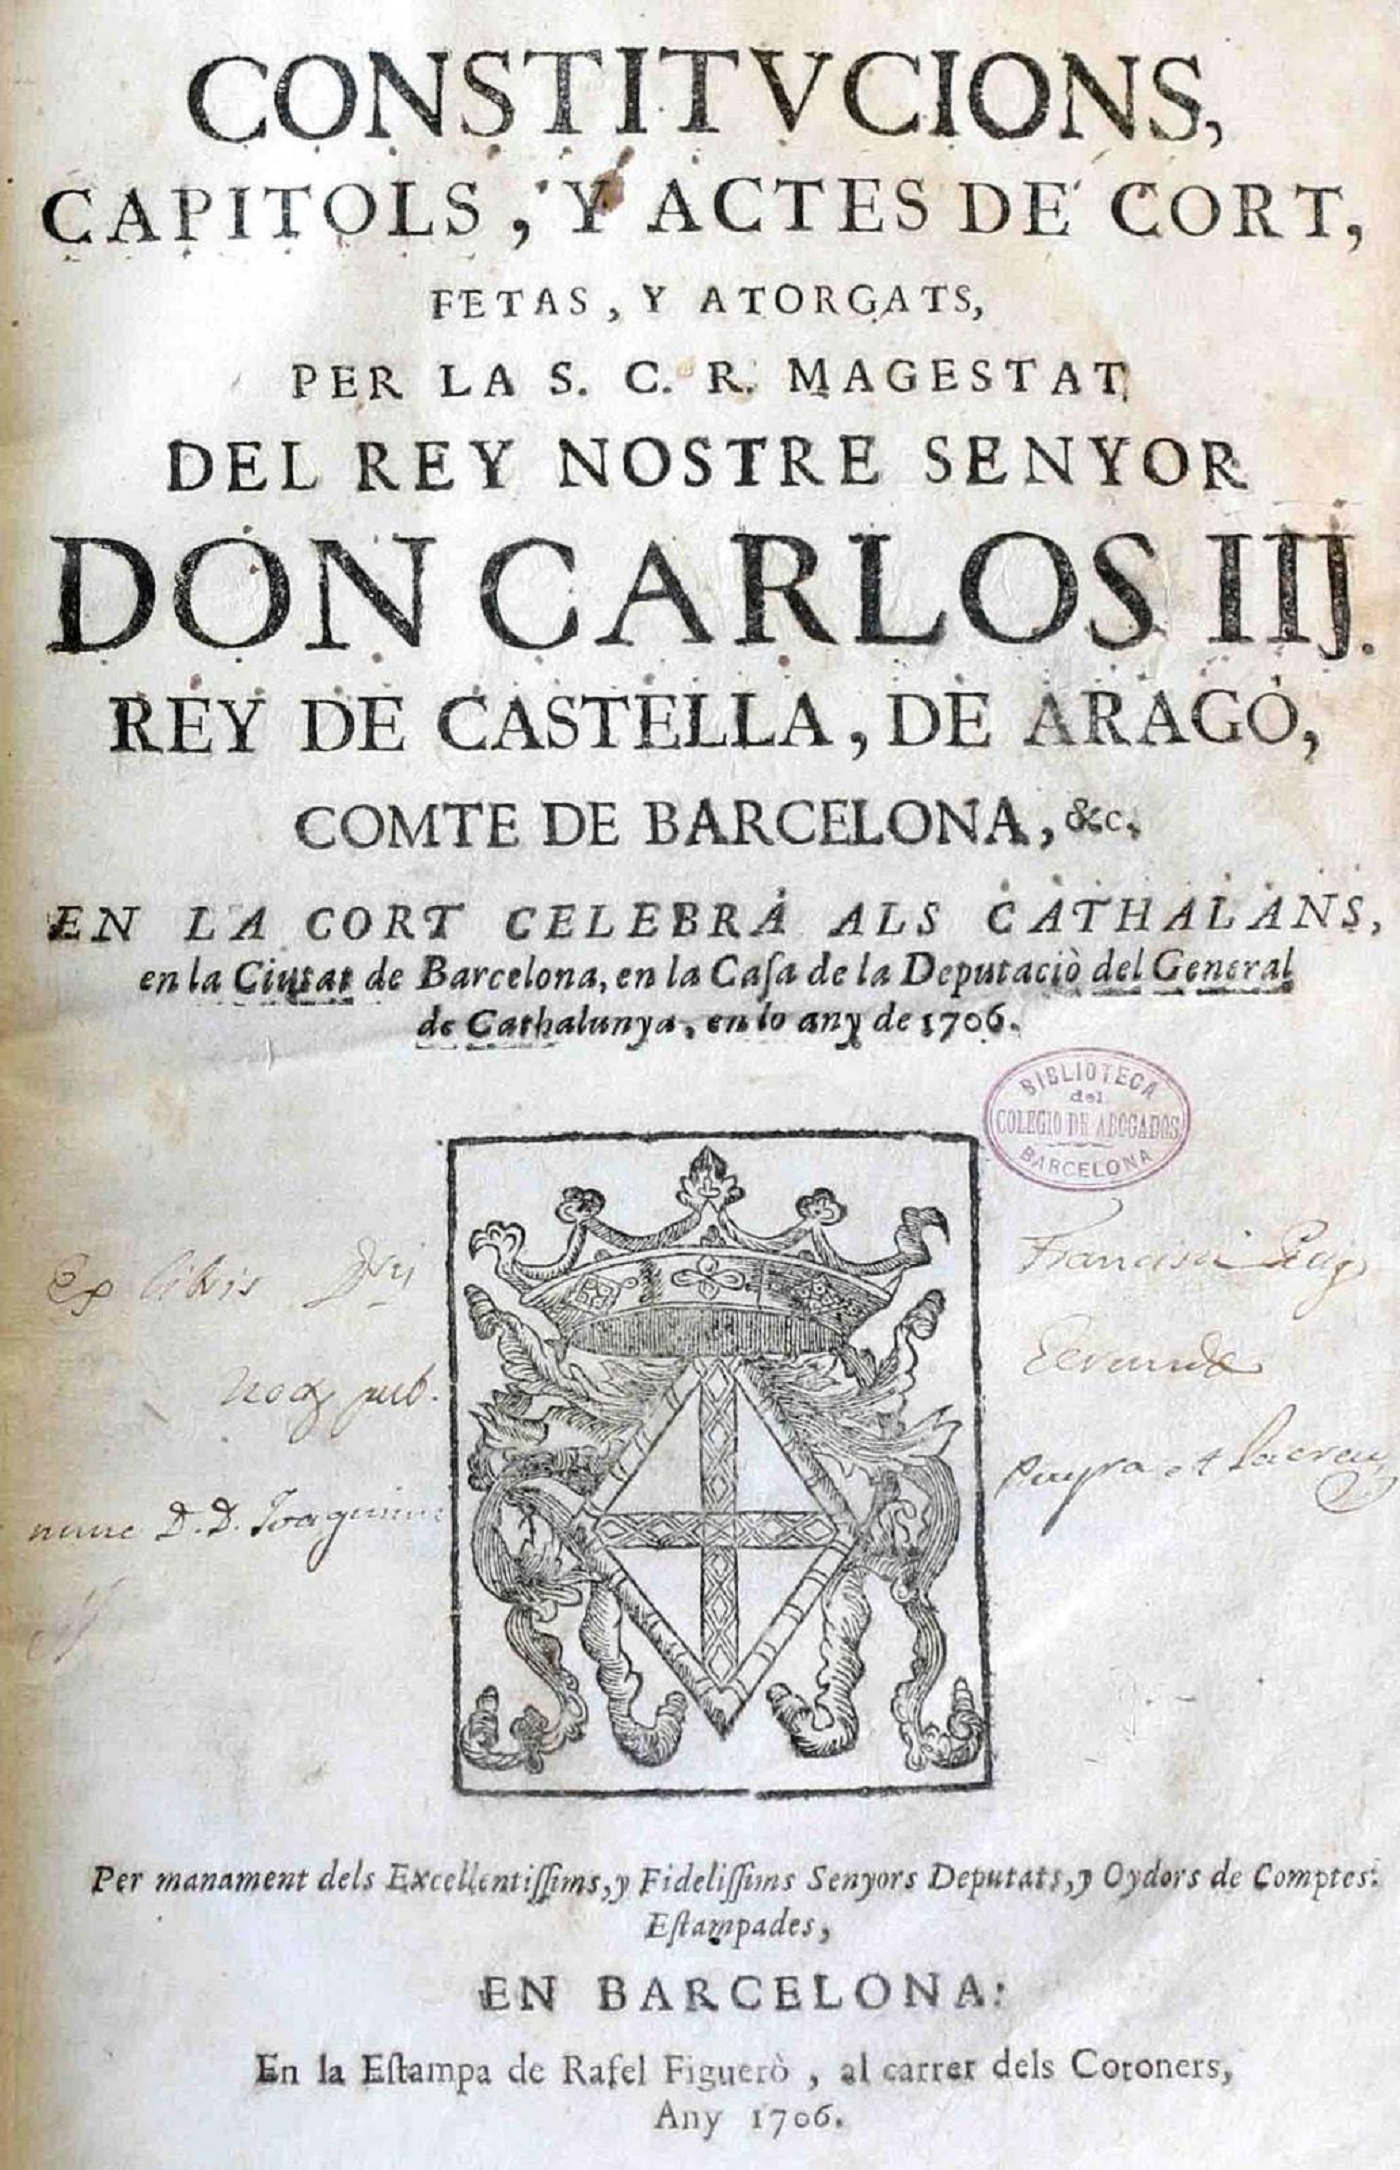 CONSTITVCIONS,
CAPITOLS, Y ACTES DE CORT,
FETAS, Y ATORGATS,
PER LA S. C. R. MAGESTAT
DEL REY NOSTRE SENYOR
DON CARLOS IIJ.
REY DE CASTELLA, DE ARAGÒ,
COMTE DE BARCELONA, &c.
EN LA CORT CELEBRÀ ALS CATHALANS,
en la Ciutat de Barcelona, en la Casa de la Deputaciò del General
de Cathalunya, en lo any de 1706.
BIBLIOTECA
del
COLEGIO DE ABOGADOS
BARCELONA
Ex libris
Francisci Puig
pub.
nunc D. D.
Per manament dels Excellentissims, y Fidelissims Senyors Deputats, y Oydors de Comptes:
Estampades,
EN BARCELONA:
En la Estampa de Rafel Figuerò, al carrer dels Cotoners,
Any 1706.